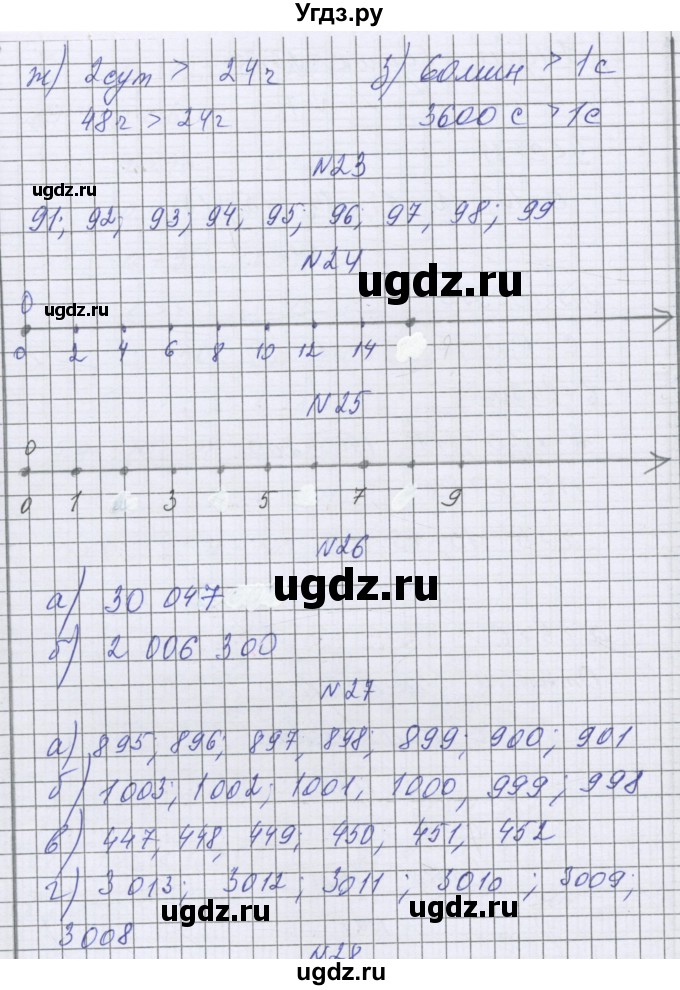 Угдз.ру
ж) 2сут > 24ч з) 60мин > 1с
48ч > 24ч 3600 с > 1с
N23
ugdz.ru
91; 92; 93; 94, 95; 96, 97, 98; 99
N24
ugdz.ru
ugdz.ru
0
0 2 4 6 8 10 12 14
N25
0
0 1 3 5 7 9
N26
ugdz.ru
а) 30 047
б) 2 006 300
N27
а) 895; 896; 897, 898; 899; 900; 901
б) 1003; 1002; 1001, 1000, 999; 998
в) 447, 448, 449; 450, 451, 452
г) 3013; 3012; 3011; 3010; 3009;
ugdz.ru ugdz.ru
3008
N28
ugdz.ru